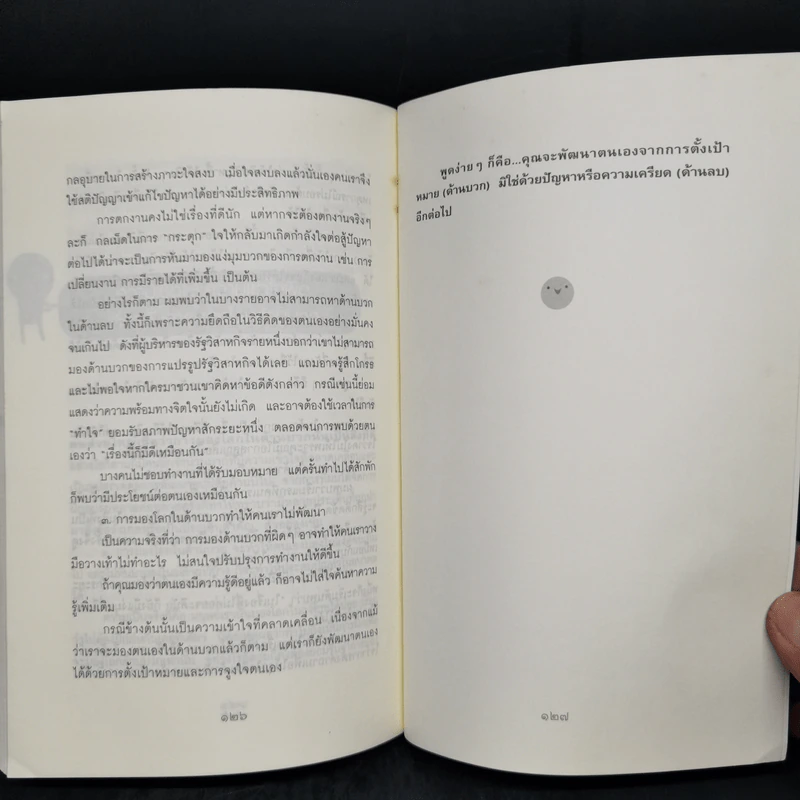 กลอุบายในการสร้างภาวะใจสงบ เมื่อใจสงบลงแล้วนั่นเองคนเราจึง
ใช้สติปัญญาเข้าแก้ไขปัญหาได้อย่างมีประสิทธิภาพ
การตกงานคงไม่ใช่เรื่องที่ดีนัก แต่หากจะต้องตกงานจริงๆ
ละก็ กลเม็ดในการ "กระตุก" ใจให้กลับมาเกิดกำลังใจต่อสู้ปัญหา
ต่อไปได้น่าจะเป็นการหันมามองแง่มุมบวกของการตกงาน เช่น การ
เปลี่ยนงาน การมีรายได้ที่เพิ่มขึ้น เป็นต้น
อย่างไรก็ตาม ผมพบว่าในบางรายอาจไม่สามารถหาด้านบวก
ในด้านลบ ทั้งนี้ก็เพราะความยึดถือในวิธีคิดของตนเองอย่างมั่นคง
จนเกินไป ดังที่ผู้บริหารของรัฐวิสาหกิจรายหนึ่งบอกว่าเขาไม่สามารถ
มองด้านบวกของการแปรรูปรัฐวิสาหกิจได้เลย แถมอาจรู้สึกโกรธ
และไม่พอใจหากใครมาชวนเขาคิดหาข้อดีดังกล่าว กรณีเช่นนี้ย่อม
แสดงว่าความพร้อมทางจิตใจนั้นยังไม่เกิด และอาจต้องใช้เวลาในการ
"ทำใจ" ยอมรับสภาพปัญหาสักระยะหนึ่ง ตลอดจนการพบด้วยตน
เองว่า "เรื่องนี้ก็มีดีเหมือนกัน"
บางคนไม่ชอบทำงานที่ได้รับมอบหมาย แต่ครั้นทำไปได้สักพัก
ก็พบว่ามีประโยชน์ต่อตนเองเหมือนกัน
๓. การมองโลกในด้านบวกทำให้คนเราไม่พัฒนา
เป็นความจริงที่ว่า การมองด้านบวกที่ผิดๆ อาจทำให้คนเราวาง
มือวางเท้าไม่ทำอะไร ไม่สนใจปรับปรุงการทำงานให้ดีขึ้น
ถ้าคุณมองว่าตนเองมีความรู้ดีอยู่แล้ว ก็อาจไม่ใส่ใจค้นหาความ
รู้เพิ่มเติม
กรณีข้างต้นนั้นเป็นความเข้าใจที่คลาดเคลื่อน เนื่องจากแม้
ว่าเราจะมองตนเองในด้านบวกแล้วก็ตาม แต่เราก็ยังพัฒนาตนเอง
ได้ด้วยการตั้งเป้าหมายและการจูงใจตนเอง
๑๒๖
พูดง่ายๆ ก็คือ...คุณจะพัฒนาตนเองจากการตั้งเป้า
หมาย (ด้านบวก) มิใช่ด้วยปัญหาหรือความเครียด (ด้านลบ)
อีกต่อไป
๑๒๗